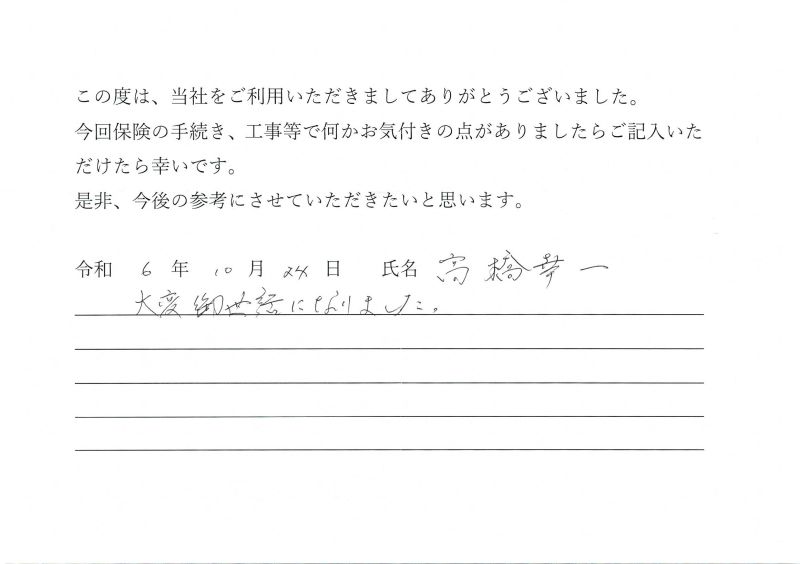 この度は、当社をご利用いただきましてありがとうございました。
今回保険の手続き、工事等で何かお気付きの点がありましたらご記入いた
だけたら幸いです。
是非、今後の参考にさせていただきたいと思います。
令和 6 年 10 月 24 日 氏名 高橋幸一
大変御世話になりました。